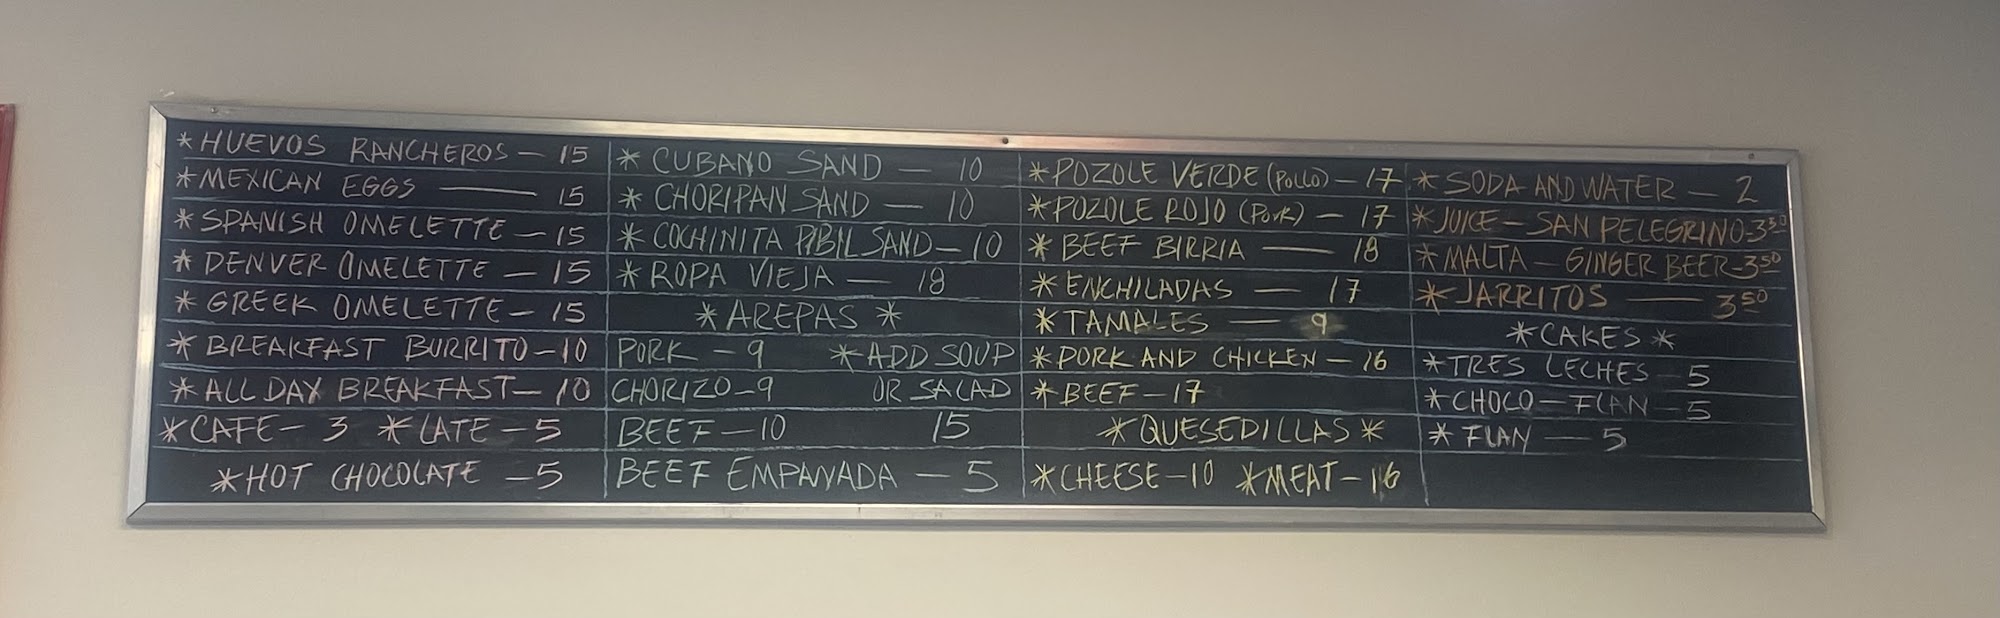 *HUEVOS RANCHEROS - 15
*MEXICAN EGGS - 15
*SPANISH OMELETTE - 15
*DENVER OMELETTE - 15
*GREEK OMELETTE - 15
*BREAKFAST BURRITO - 10
*ALL DAY BREAKFAST - 10
*CAFE - 3 *LATE - 5
*HOT CHOCOLATE - 5
*CUBANO SAND - 10
*CHORIPAN SAND - 10
*COCHINITA PIBIL SAND - 10
*ROPA VIEJA - 18
*AREPAS*
PORK - 9 *ADD SOUP
CHORIZO - 9 OR SALAD
BEEF - 10 15
BEEF EMPANADA - 5
*POZOLE VERDE (POLLO) - 17
*POZOLE ROJO (PORK) - 17
*BEEF BIRRIA - 18
*ENCHILADAS - 17
*TAMALES - 9
*PORK AND CHICKEN - 16
*BEEF - 17
*QUESEDILLAS*
*CHEESE - 10 *MEAT - 16
*SODA AND WATER - 2
*JUICE - SAN PELEGRINO - 3 50
*MALTA - GINGER BEER - 3 50
*JARRITOS - 3 50
*CAKES*
*TRES LECHES - 5
*CHOCO - FLAN - 5
*FLAN - 5